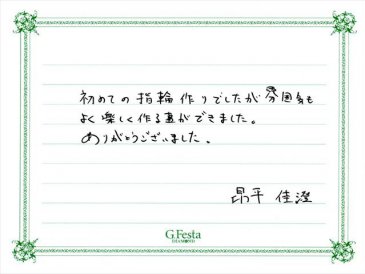 初めての指輪作りでしたが雰囲気も
よく楽しく作る事ができました。
ありがとうございました。
昂平 佳澄
G.Festa
DIAMOND